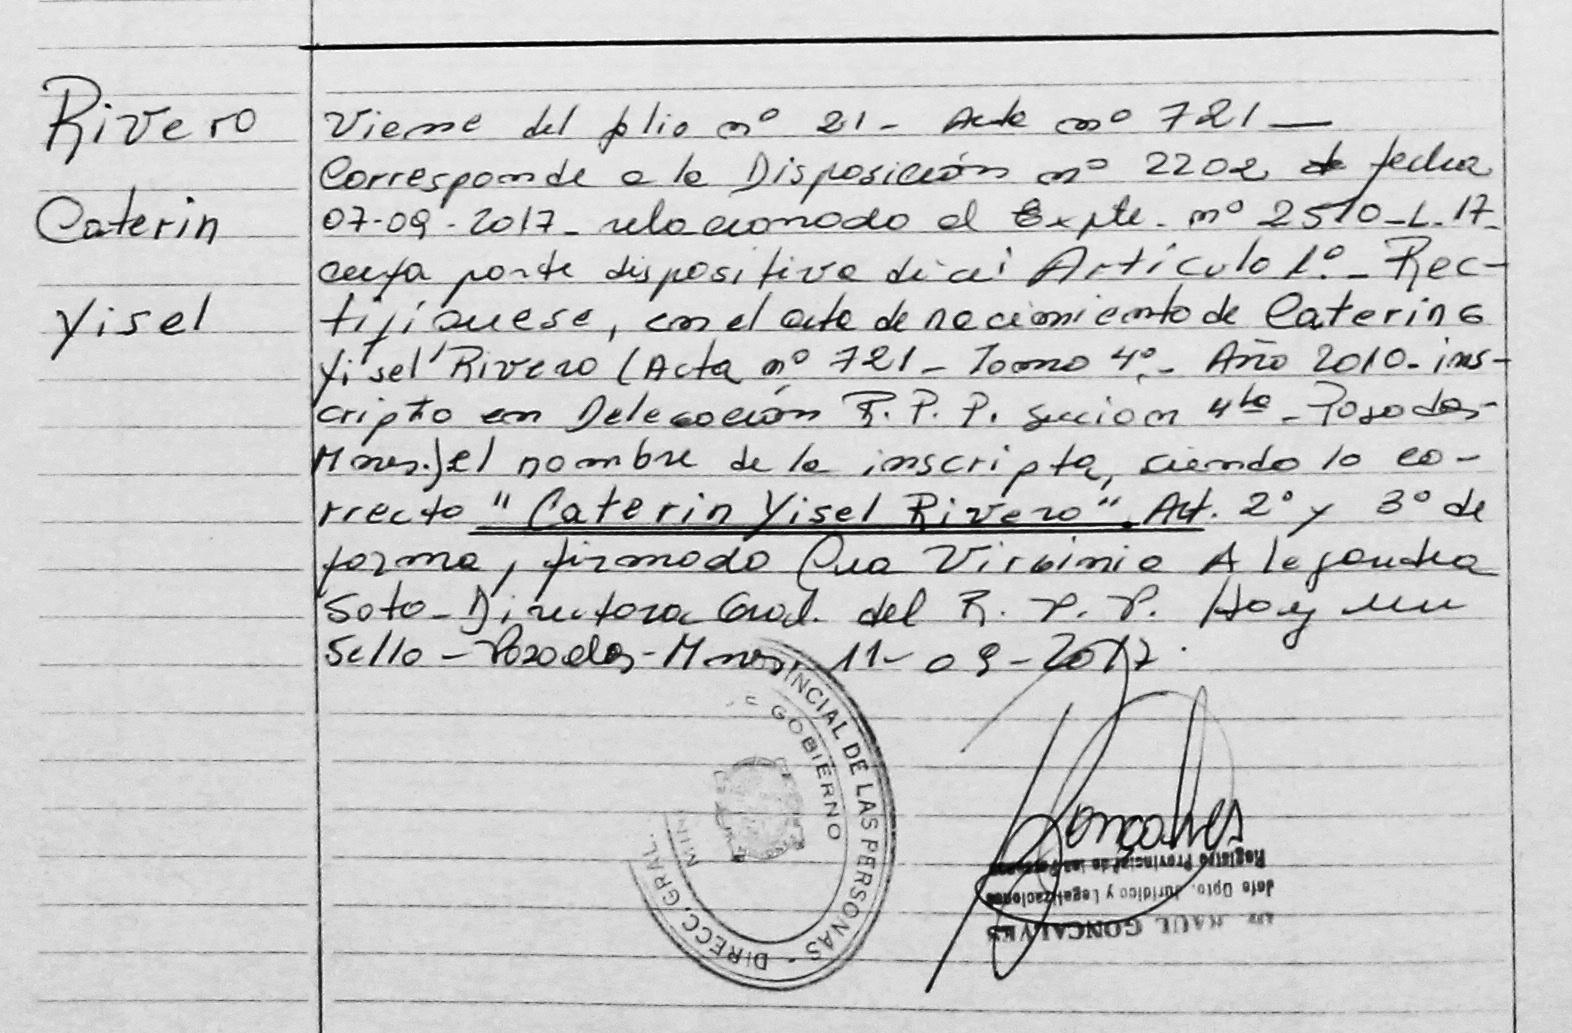 Rivero
Caterin
Yisel
Viene del folio nº 21 - Acta nº 721 —
Corresponde a la Disposición nº 2202 de fecha
07-09-2017 - relacionado al Expte. nº 2510-L-17-
cuya parte dispositiva dice: Artículo 1º - Rec-
tifíquese, en el acta de nacimiento de Caterina
Yisel Rivero (Acta nº 721 - Tomo 4º - Año 2010 - ins-
cripto en Delegación R. P. P. sección 4ta - Posadas-
Mnes.) el nombre de la inscripta, siendo lo co-
rrecto "Caterin Yisel Rivero". Art. 2º y 3º de
forma, firmado Cra Virginia Alejandra
Soto - Directora Gral. del R. P. P. Hay un
Sello - Posadas - Mnes, 11-09-2017.
DIRECC. GRAL. INCIAL DE LAS PERSONAS -
MIN GOBIERNO
Goncalves
RAUL GONCALVES
Jefe Dpto. Jurídico y Legalizaciones
Registro Provincial de las Personas